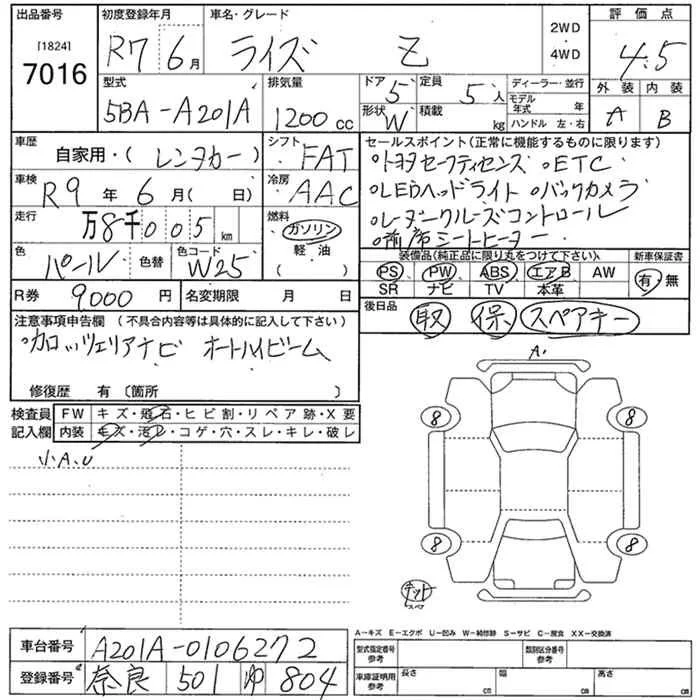 出品番号 初度登録年月 車名・グレード 2WD 評価点
[1824] 7016 R7 6月 ライズ Z 4WD 4.5
型式 排気量 ドア 5 定員 5人 ディーラー・並行 外装 内装
5BA-A201A 1200cc 形状 W 積載 kg モデル年式 年 ハンドル 左・右 A B
車歴 自家用・(レンタカー) シフト FAT セールスポイント(正常に機能するものに限ります)
。トヨタセーフティセンス 。ETC
車検 R9年 6月( 日) 冷房 AAC 。LEDヘッドライト 。バックカメラ
走行 万8千005km 燃料 ガソリン 。レーダークルーズコントロール
。前席シートヒーター
色 パール 色替 色コード W25 軽油 ( )
装備品(純正品に限り丸をつけて下さい) 新車保証書
PS PW ABS エアB AW 有・無
SR ナビ TV 本革
R券 9000円 名変期限 月 日 後日品 取 保 スペアキー
注意事項申告欄 (不具合内容等は具体的に記入して下さい)
カロッツェリアナビ オートハイビーム
修復歴 有 〔箇所 〕
A1
検査員 FW キズ・飛石・ヒビ割・リペア跡・X要
記入欄 内装 キズ・汚レ・コゲ・穴・スレ・キレ・破レ
小A.U
8 8
8 8
キット
スペア
A-キズ E-エクボ U-凹み W-補修跡 S-サビ C-腐食 XX-交換済
車台番号 A201A-0106272 型式指定番号 参考 類別区分番号 参考
登録番号 奈良 501 ゆ 804 車庫証明用 参考 長さ cm 幅 cm 高さ cm